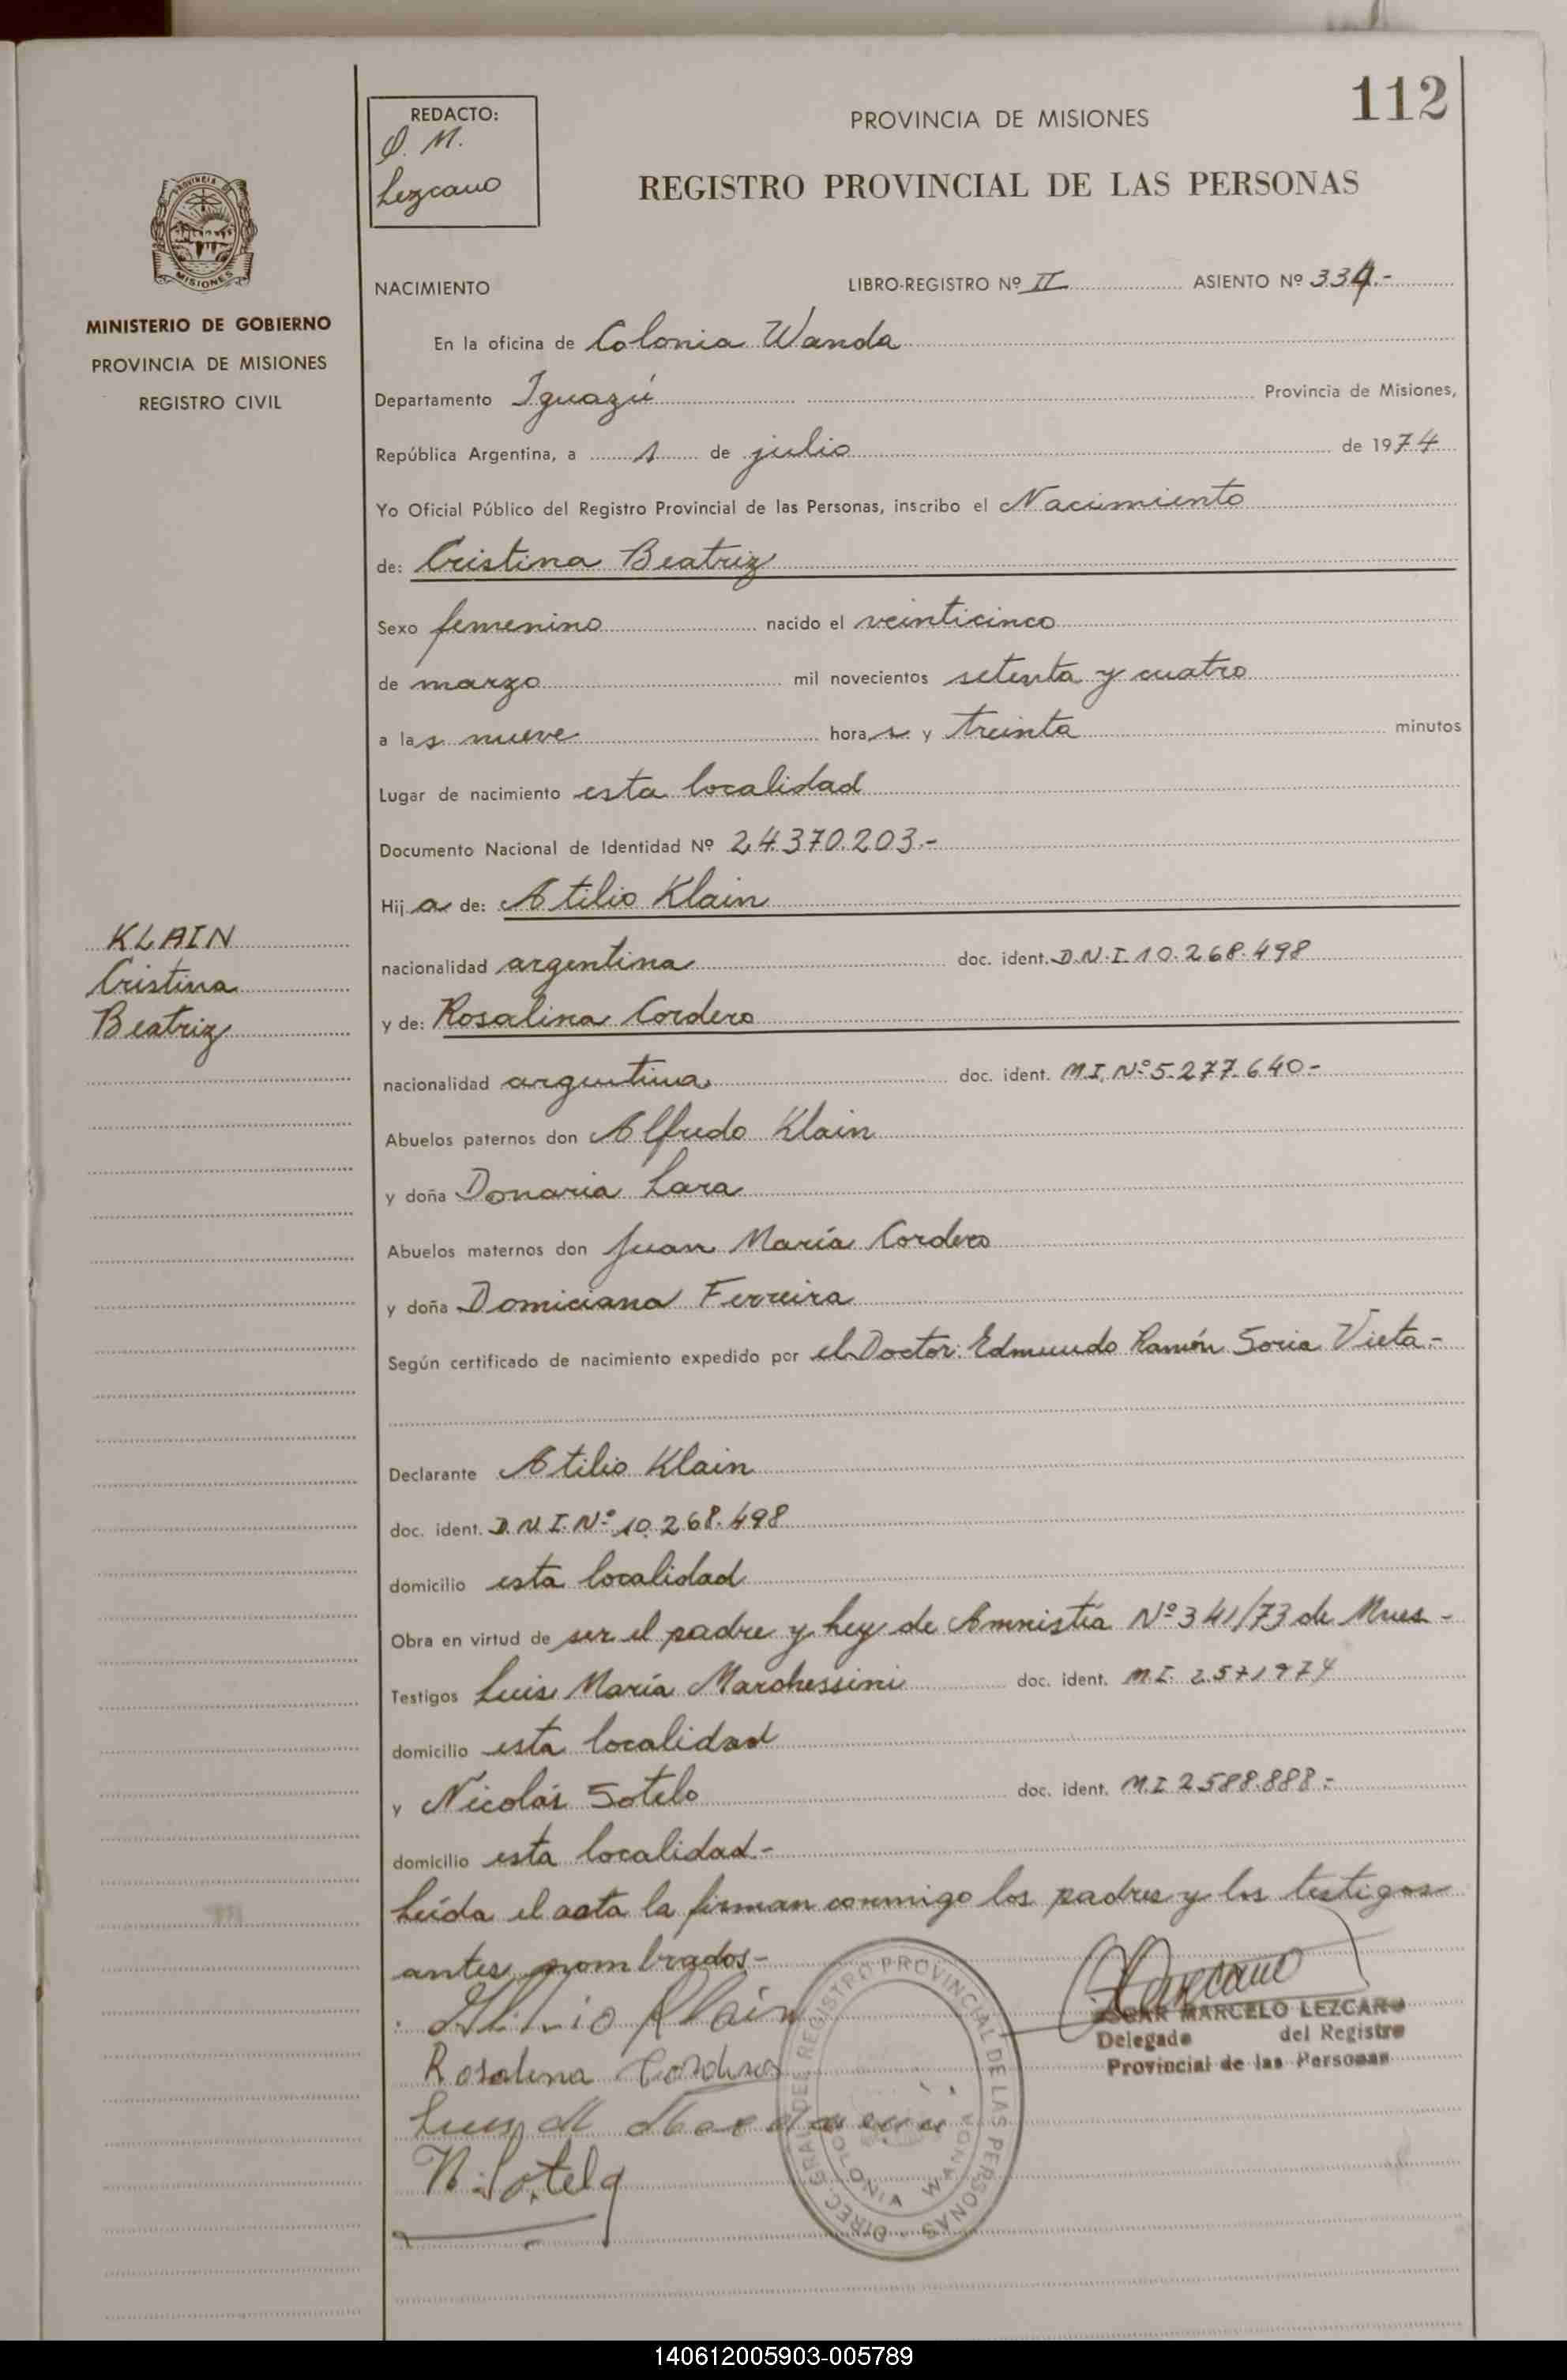 112
REDACTO:
O. M.
Lezcano
PROVINCIA DE MISIONES
REGISTRO PROVINCIAL DE LAS PERSONAS
PROVINCIA DE
MISIONES
MINISTERIO DE GOBIERNO
PROVINCIA DE MISIONES
REGISTRO CIVIL
NACIMIENTO LIBRO-REGISTRO Nº II ASIENTO Nº 334.-
En la oficina de Colonia Wanda
Departamento Iguazú Provincia de Misiones,
República Argentina, a 1 de julio de 1974
Yo Oficial Público del Registro Provincial de las Personas, inscribo el Nacimiento
de: Cristina Beatriz
Sexo femenino nacido el veinticinco
de marzo mil novecientos setenta y cuatro
a las nueve horas y treinta minutos
Lugar de nacimiento esta localidad
Documento Nacional de Identidad Nº 24.370.203.-
Hija de: Atilio Klain
KLAIN
Cristina
Beatriz
nacionalidad argentina doc. ident. D.N.I. 10.268.498
y de: Rosalina Cordero
nacionalidad argentina doc. ident. M.I. Nº 5.277.640-
Abuelos paternos don Alfredo Klain
y doña Donaria Lara
Abuelos maternos don Juan María Cordero
y doña Domiciana Ferreira
Según certificado de nacimiento expedido por el Doctor: Edmundo Ramón Soria Vieta.-
Declarante Atilio Klain
doc. ident. D.N.I. Nº 10.268.498
domicilio esta localidad
Obra en virtud de ser el padre y ley de Amnistía Nº 341/73 de Mnes-
Testigos Luis María Marchessini doc. ident. M.I. 2.571974
domicilio esta localidad
y Nicolás Sotelo doc. ident. M.I 2.588.888.-
domicilio esta localidad-
Leída el acta la firman conmigo los padres y los testigos
antes nombrados-
Atilio Klain
Rosalina Cordero
Luis M
N. Sotelo
DIREC. GRAL. DEL REGISTRO PROVINCIAL DE LAS PERSONAS
COLONIA WANDA
Lezcano
OSCAR MARCELO LEZCANO
Delegado del Registro
Provincial de las Personas
140612005903-005789